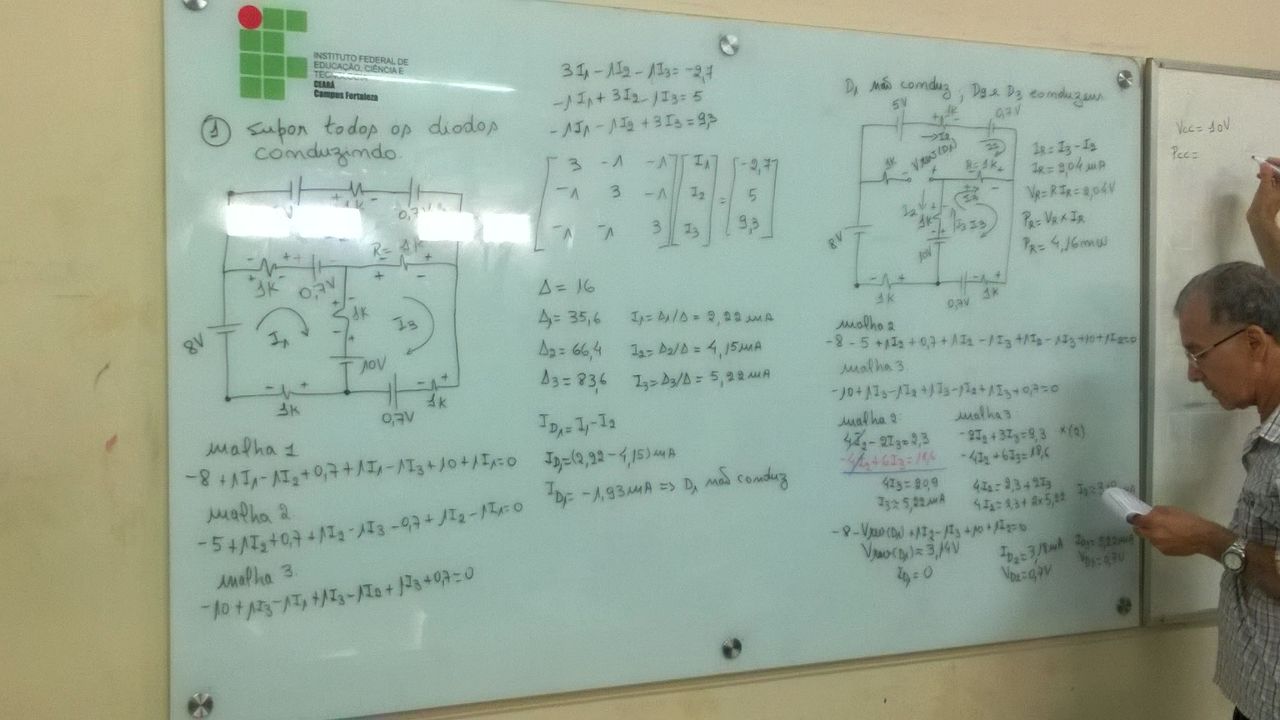 INSTITUTO FEDERAL DE
EDUCAÇÃO, CIÊNCIA E
TECNOLOGIA
CEARÁ
Campus Fortaleza
① Supor todos os diodos
conduzindo.
1K
0,7V
R= 1K
1K
0,7V
1K
8V
I₁
I₃
10V
1K
0,7V
1K
malha 1
-8+1I₁-1I₂+0,7+1I₁-1I₃+10+1I₁=0
malha 2
-5+1I₂+0,7+1I₂-1I₃-0,7+1I₂-1I₁=0
malha 3.
-10+1I₃-1I₁+1I₃-1I₂+1I₃+0,7=0
3I₁-1I₂-1I₃=-2,7
-1I₁+3I₂-1I₃=5
-1I₁-1I₂+3I₃=9,3
3 -1 -1 I₁ -2,7
-1 3 -1 I₂ = 5
-1 -1 3 I₃ 9,3
Δ=16
Δ₁=35,6 I₁=Δ₁/Δ=2,22mA
Δ₂=66,4 I₂=Δ₂/Δ=4,15mA
Δ₃=83,6 I₃=Δ₃/Δ=5,22mA
I_D₁=I₁-I₂
I_D₁=(2,22-4,15)mA
I_D₁=-1,93mA => D₁ não conduz
D₁ não conduz, D₂ e D₃ conduzem
5V
1K
0,7V
I₂
1K
Vrev(D₁)
R=1K
I₂
1K
I₃
8V
10V
1K
0,7V
1K
I_R=I₃-I₂
I_R=2,04mA
V_R=RI_R=2,04V
P_R=V_R×I_R
P_R=4,16mW
malha 2
-8-5+1I₂+0,7+1I₂-1I₃+1I₂-1I₃+10+1I₂=0
malha 3.
-10+1I₃-1I₂+1I₃-1I₂+1I₃+0,7=0
malha 2: malha 3
4I₂-2I₃=2,3 -2I₂+3I₃=9,3 ×(2)
-4I₂+6I₃=18,6 -4I₂+6I₃=18,6
4I₃=20,9 4I₂=2,3+2I₃
I₃=5,22mA 4I₂=2,3+2×5,22
-8-Vrev(D₁)+1I₂-1I₃+10+1I₂=0
Vrev(D₁)=3,14V I_D₂=3,18mA
I_D₁=0 V_D₂=0,7V
Vcc=10V
Pcc=